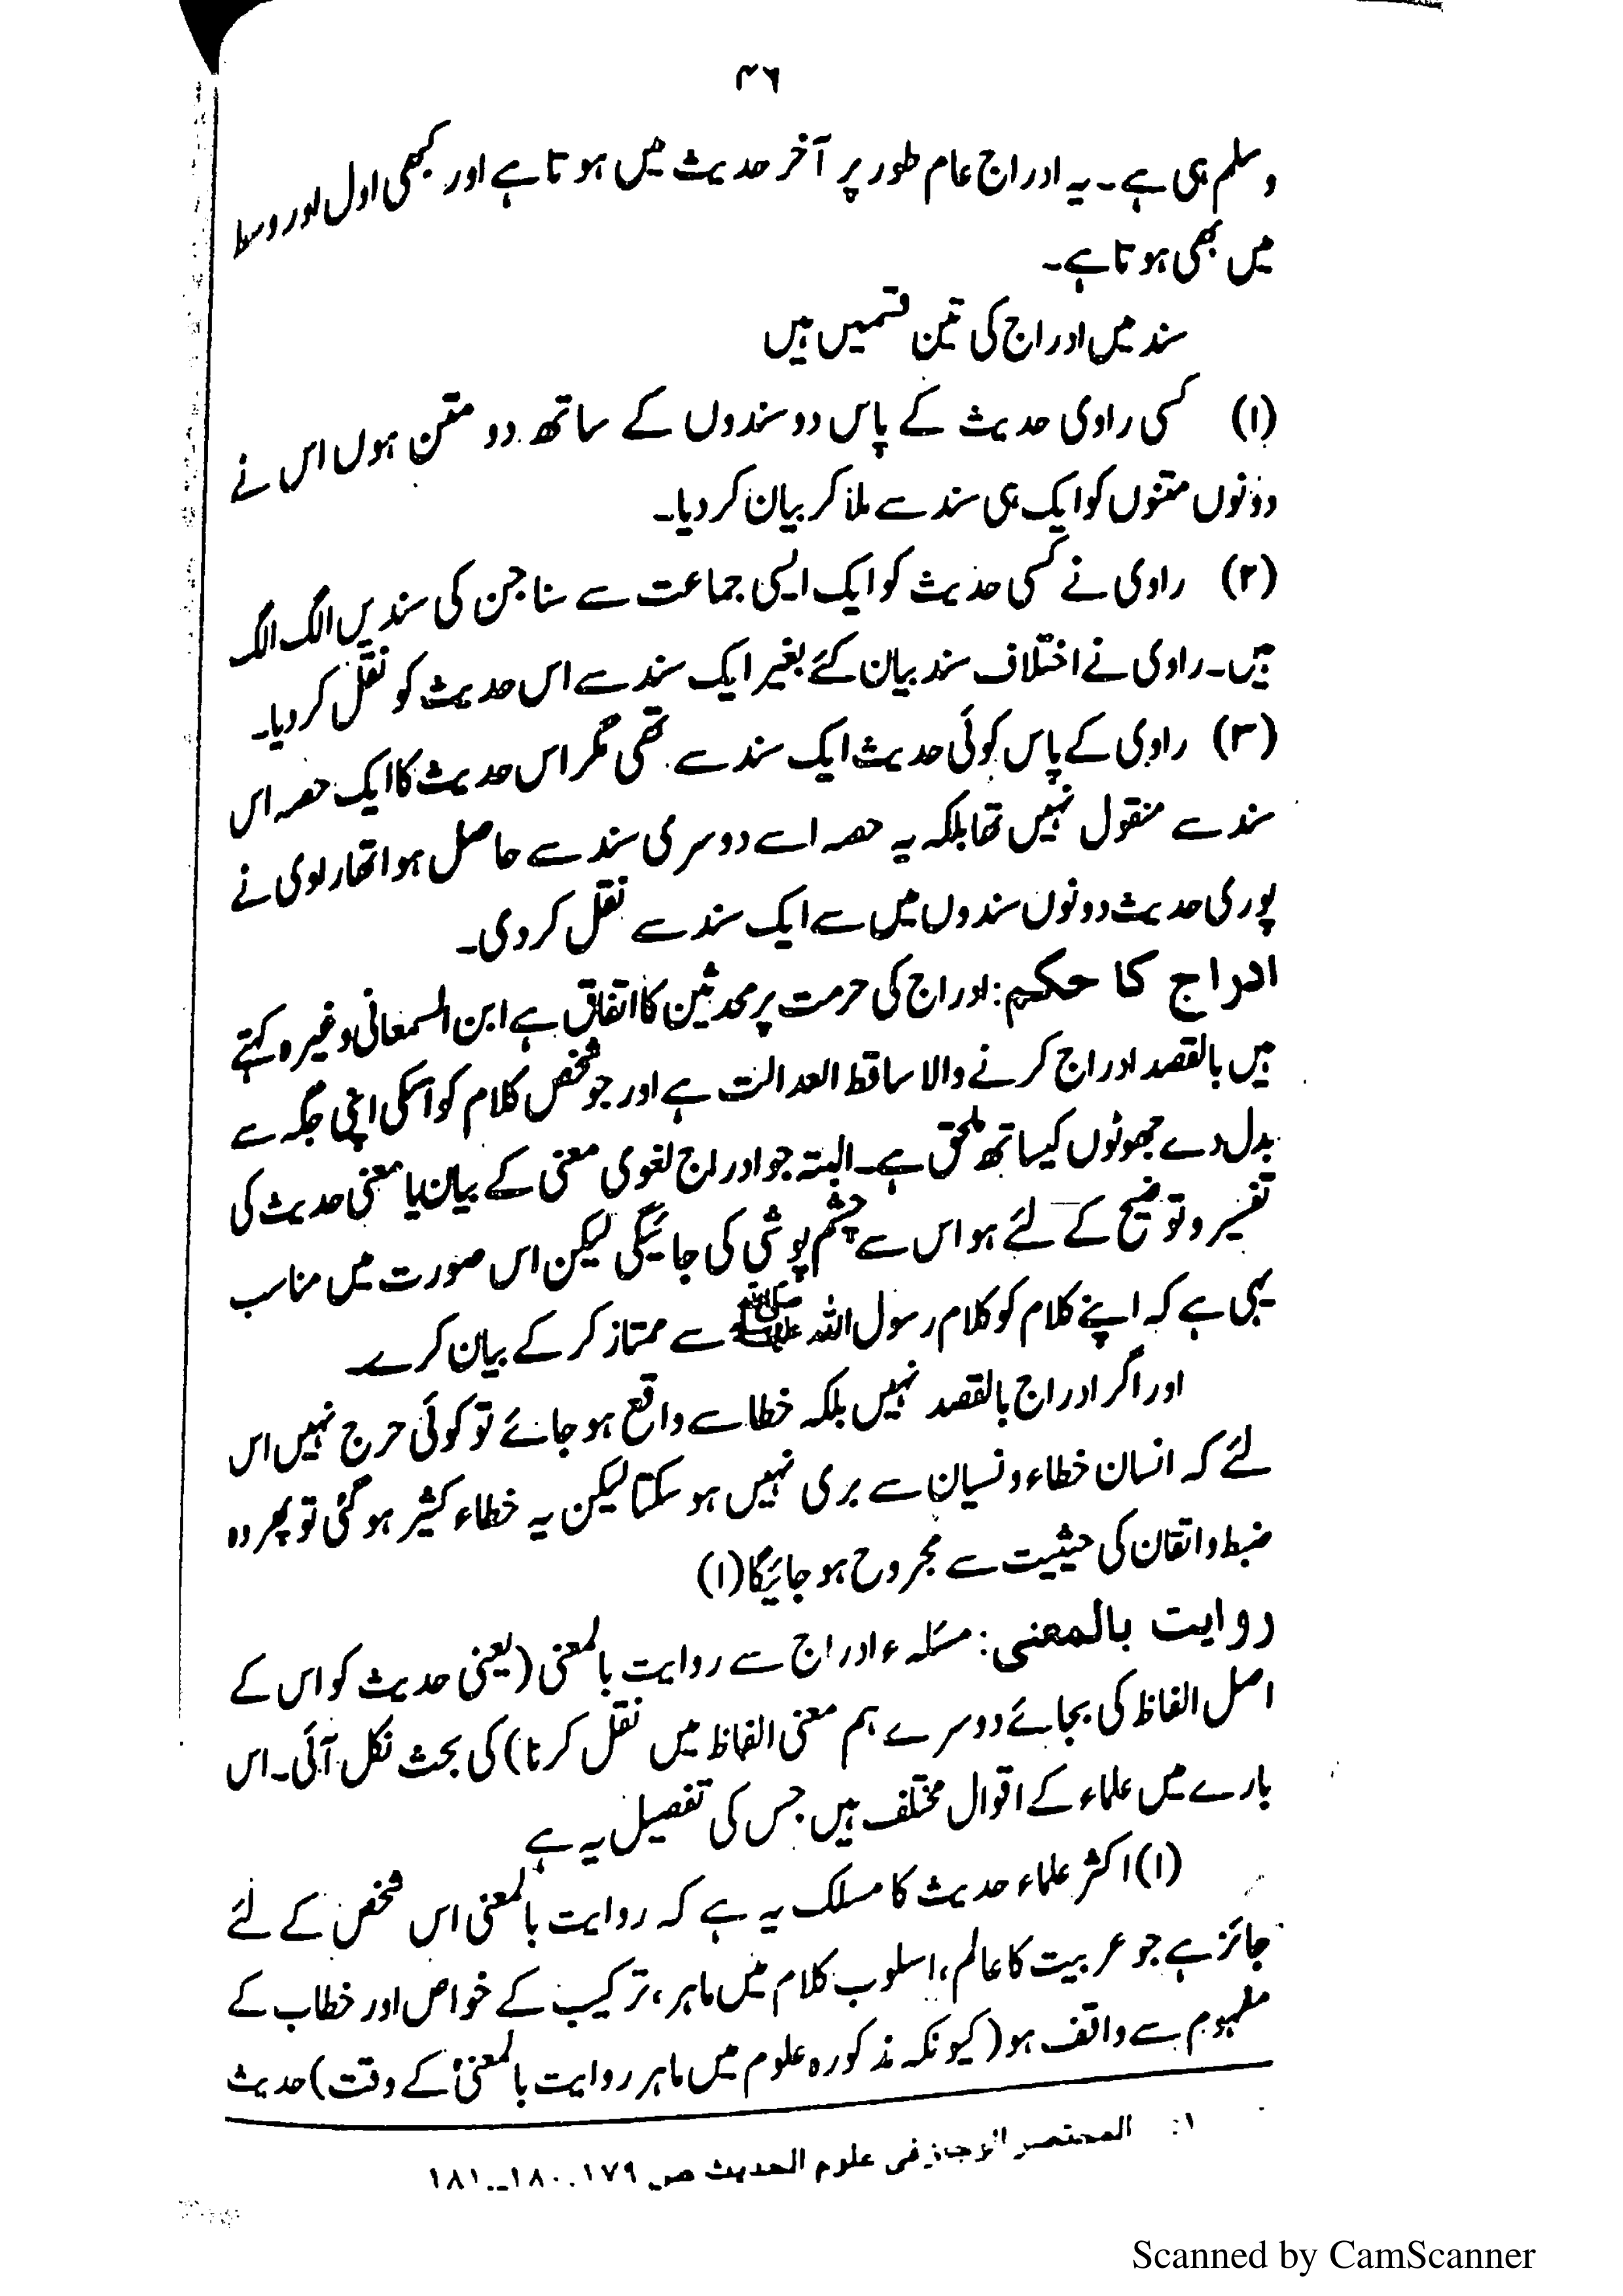 ۴۶
وسلم ہی ہے۔ یہ ادراج عام طور پر آخر حدیث میں ہوتا ہے اور کبھی اول اور وسط
میں بھی ہوتا ہے۔
سند میں ادراج کی تین قسمیں ہیں
(۱) کسی راوی حدیث کے پاس دو سندوں کے ساتھ دو متن ہوں اس نے
دونوں متنوں کو ایک ہی سند سے ملا کر بیان کر دیا۔
(۲) راوی نے کسی حدیث کو ایک ایسی جماعت سے سنا جن کی سندیں الگ الگ
ہیں۔ راوی نے اختلاف سند بیان کئے بغیر ایک سند سے اس حدیث کو نقل کر دیا۔
(۳) راوی کے پاس کوئی حدیث ایک سند سے تھی مگر اس حدیث کا ایک حصہ اس
سند سے منقول نہیں تھا بلکہ یہ حصہ اسے دوسری سند سے حاصل ہوا تھا راوی نے
پوری حدیث دونوں سندوں میں سے ایک سند سے نقل کر دی۔
ادراج کا حکم: ادراج کی حرمت پر محدثین کا اتفاق ہے ابن السمعانی وغیرہ کہتے
ہیں بالقصد ادراج کرنے والا ساقط العدالت ہے اور جو شخص کلام کو اسکی اپنی جگہ سے
بدل دے جھوٹوں کیساتھ ملحق ہے۔ البتہ جو ادراج لغوی معنی کے بیان یا معنی حدیث کی
تفسیر و توضیح کے لئے ہو اس سے چشم پوشی کی جائیگی لیکن اس صورت میں مناسب
یہی ہے کہ اپنے کلام کو کلام رسول اللہ ﷺ سے ممتاز کر کے بیان کرے۔
اور اگر ادراج بالقصد نہیں بلکہ خطا سے واقع ہو جائے تو کوئی حرج نہیں اس
لئے کہ انسان خطاء و نسیان سے بری نہیں ہو سکتا لیکن یہ خطاء کثیر ہو گئی تو پھر وہ
ضبط و اتقان کی حیثیت سے مجروح ہو جائیگا (۱)
روایت بالمعنی: مسئلہ ء ادراج سے روایت بالمعنی (یعنی حدیث کو اس کے
اصل الفاظ کی بجائے دوسرے ہم معنی الفاظ میں نقل کرنا) کی بحث نکل آئی۔ اس
بارے میں علماء کے اقوال مختلف ہیں جس کی تفصیل یہ ہے
(۱) اکثر علماء حدیث کا مسلک یہ ہے کہ روایت بالمعنی اس شخص کے لئے
جائز ہے جو عربیت کا عالم، اسلوب کلام میں ماہر، ترکیب کے خواص اور خطاب کے
مفہوم سے واقف ہو (کیونکہ مذکورہ علوم میں ماہر روایت بالمعنیٰ کے وقت) حدیث
۱: المختصر الوجاز فی علوم الحدیث ص ۱۷۹۔۱۸۰۔۱۸۱
Scanned by CamScanner